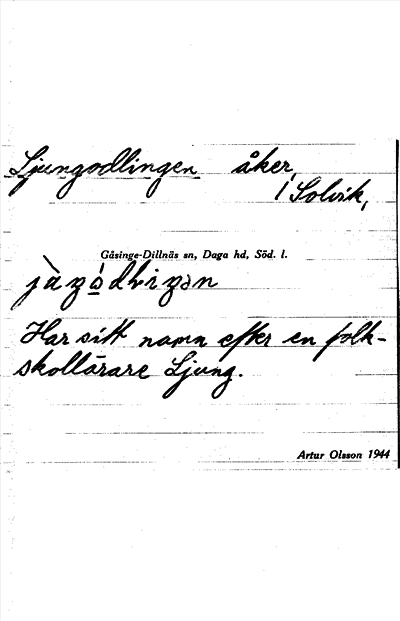 Ljungodlingen åker,
1 Solvik,
Gåsinge-Dillnäs sn, Daga hd, Söd. l.
Har sitt namn efter en folk-
skollärare Ljung.
Artur Olsson 1944